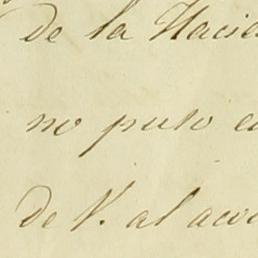 de la Hacie
no puso e
de V. al aco